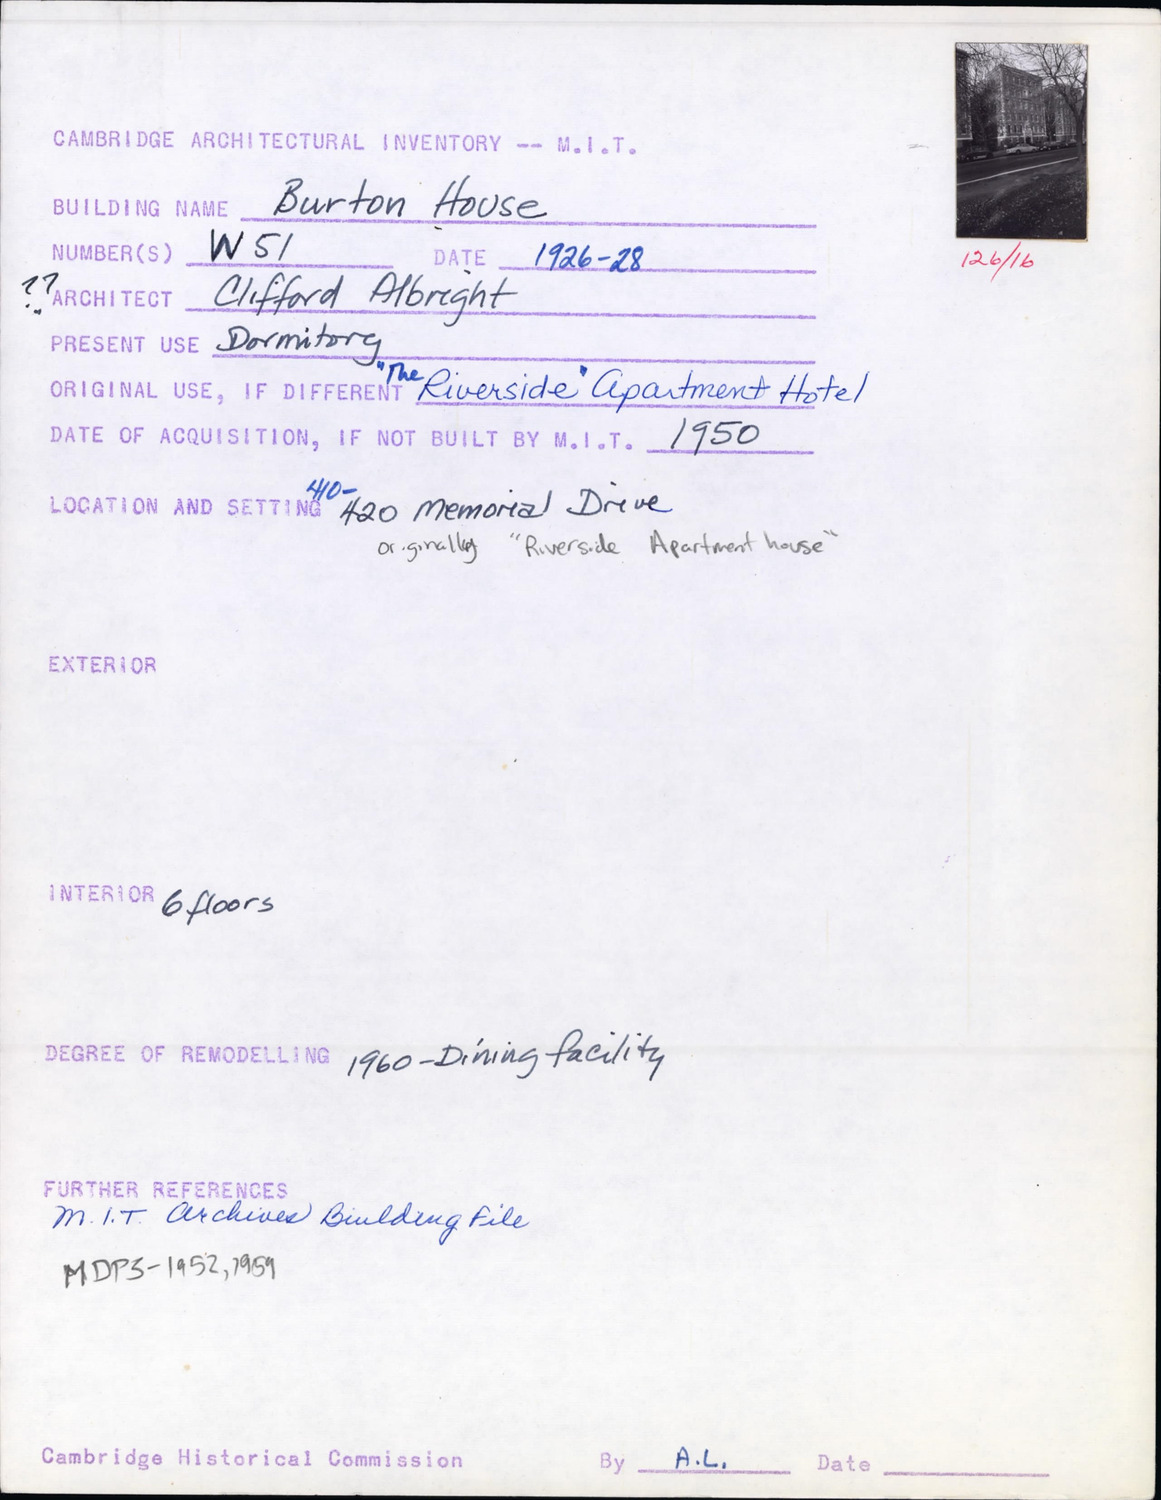 CAMBRIDGE ARCHITECTURAL INVENTORY -- M.I.T.
126/16
BUILDING NAME Burton House
NUMBER(S) W 51 DATE 1926-28
?? ARCHITECT Clifford Albright
PRESENT USE Dormitory
ORIGINAL USE, IF DIFFERENT "The Riverside" Apartment Hotel
DATE OF ACQUISITION, IF NOT BUILT BY M.I.T. 1950
LOCATION AND SETTING 410-420 Memorial Drive
originally "Riverside Apartment house"
EXTERIOR
INTERIOR 6 floors
DEGREE OF REMODELLING 1960-Dining facility
FURTHER REFERENCES
M.I.T. Archives Building File
MDPS-1952, 1959
Cambridge Historical Commission By A.L. Date